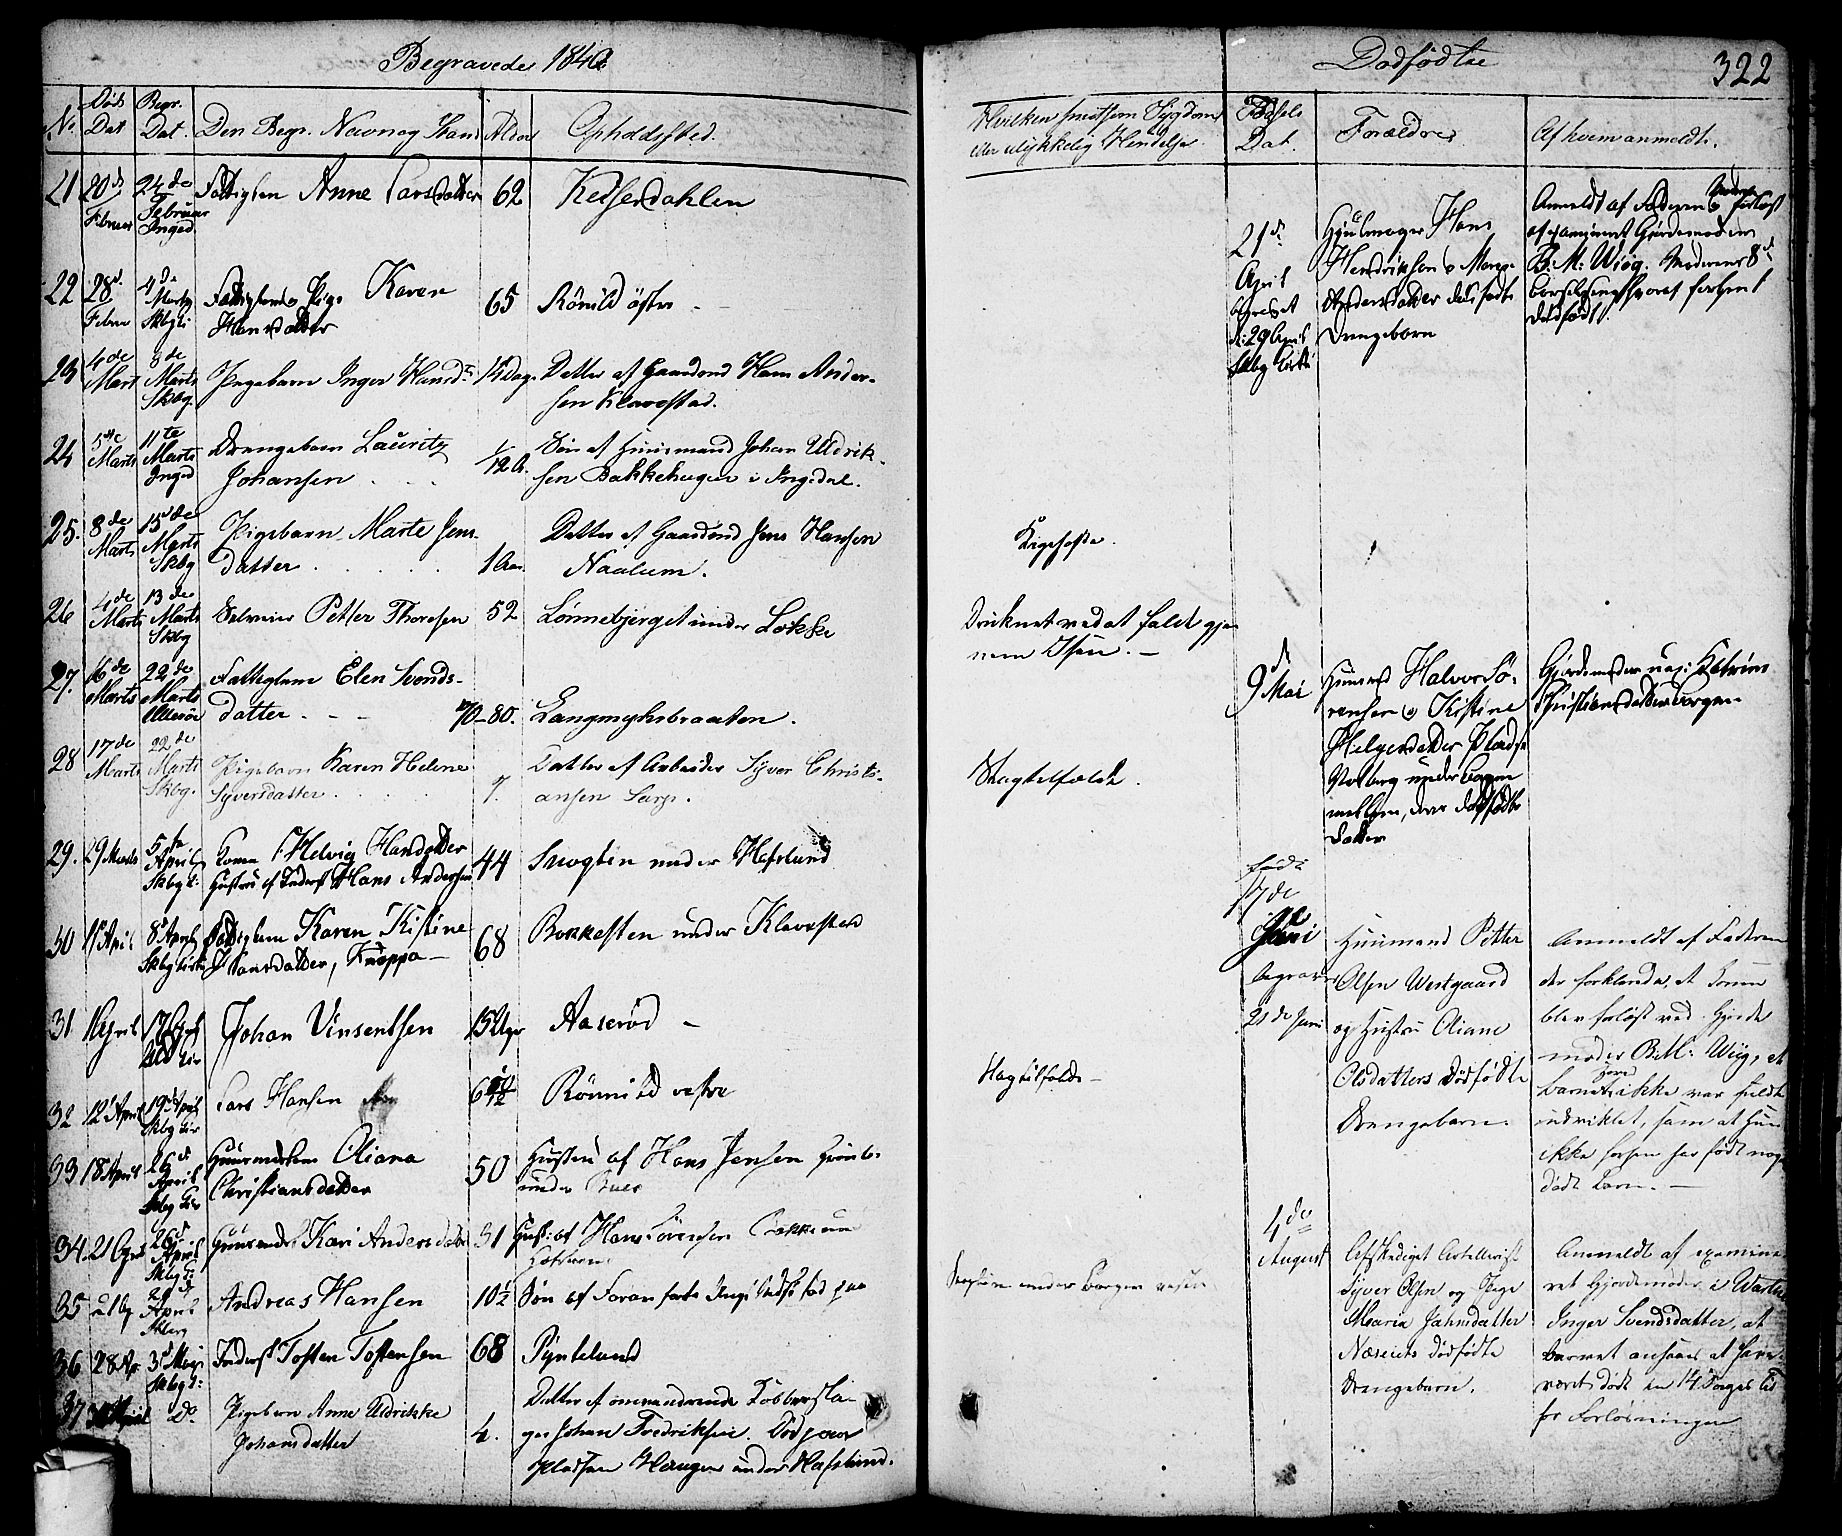 Begravede 1840
No. Døds Dat Begr. Dat. Den Begr. Navn og Stand Alder Opholdssted.
21 20de Februar 24de Februar Inged Fattiglem Anne Larsdatter 62 Keiserdahlen
22 28d Februar 4de Marts Skbg Fattiglem Pige Karen Hansdatter 65 Rönild östre
23 4de Mart 8de Marts Skbg. Pigebarn Inger Hansdr 14 Dage Datter af Gaardmd Hans Andersen Klavestad.
24 5te Marts 11te Marts Inged Drengebarn Lauritz Johansen 1/12 A. Sön af Huusmand Johan Uldriksen Bakkehugen i Ingedal.
25. 8de Marts 15de Marts Skbg Pigebarn Marte Jensdatter 1 Aar Datter af Gaardmd Jens Hansen Naalum.
26 4de Marts 13de Marts Skbg Petter Thoresen 52 under Løkke
27. 16de Marts 22de Marts Ullerøe Fattiglem Elen Svendsdatter 70-80. Langmyhrbraaten.
28 17de Marts 22de Marts Skbg. Pigebarn Karen Helene Syversdatter 7. Datter af Arbeider Syver Christiansen Sarps.
29. 29 Marts 5te April Skbg Kone Helvig Hansdatter Hustru af Inderst Hans Andersen 44 under Hafslund
30 1st April 8de April Skbg Kirke Fattiglem Karen Kistine Hansdatter, Knoppa 68 Bakkesten under Klavestad
31 April 17 April Johan Vinsentsen 15 Uger Aaserød
32 12 April 19 April Skbg Kir Lars Hansen 6 1/2 Rönnild vestre
33 18 April 26d April Skbg Kir Huusmandskone Oliana Christiansdatter 50 Hustru af Hans Jensen under
34. 21 April 26d April Skbg K: Kari Andersdatter 31 Hust: af Hans Sörensen
35 21 Ap April Skberg Andreas Hansen 10 1/2 Sön af
36 28 Ap 3d Mai Skbg k: Inderst Tosten Tostensen 68 Pyntelund
37 April Do Pigebarn Anne Uldrikke Johansdatter 4. Datter af omvandrende Kobberslager Johan Fredriksen. Död paa Pladsen Haugen under Hafslund.
Dødfødte 322
Hvilken smitsom Sygdom eller ulykkelig Hendelse Födsels Dat. Forældre Af hvem anmeldt.
21d April begravet d: 29 April Skbg Kirke Hjulmager Hans Hendriksen & Maren Andersdatter dødfødte Drengebarn Anmeldt af Faderen Moderen forløst af examineret Gjordemoder B: M: Wiig. Moderens 8d Barselseng hvoraf forhent dødfødt.
Kighoste.
Druknet ved at falde gjennem Isen.
9d Mai Huusmd Halvor Sörensen & Kistine Helgesdatter Pladsen under Borgen mellem, deres dødfødte Datter Gjordemoder uex: Katrine Christiansdatter Borgen
Slagtilfælde.
föde 17de Juni begravet 21de Juni Huusmand Petter Olsen Westgaard og Hustru Oliane Olsdatters Dödfödte Drengebarn. Anmeldt af Faderen der forklarede, at Konen blev forløst ved Gjordemoder B.M: Wiig, at Barnet ikke var fuldt udviklet, samt at hun ikke forhen har født noget dødt Barn.
Slagtilfælde
under Borgen
4de August Afskediget Artellerist Syver Olsen og Pige Maria Jahnsdatter Næseiets dödfödte Drengebarn. Anmeldt af examineret Gjordemoder i Warteig Inger Svendsdatter, at Barnet ansaaes at have været dødt en 14 Dages Tid før Forløsningen